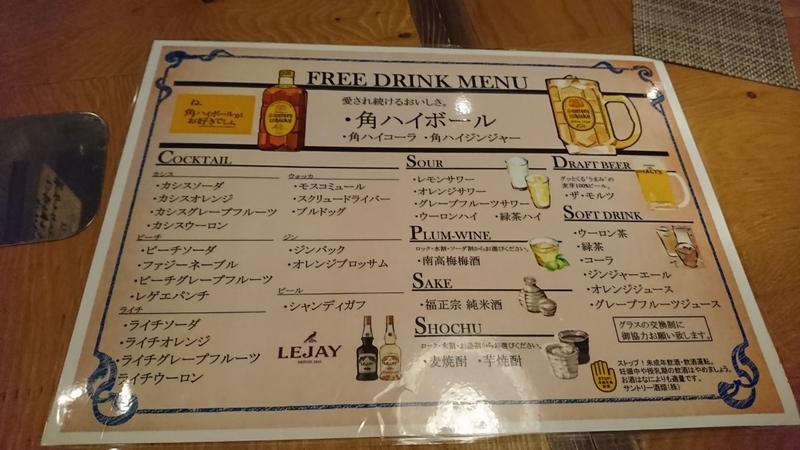 FREE DRINK MENU
ね。
角ハイボールが
お好きでしょ。
愛され続けるおいしさ。
・角ハイボール
・角ハイコーラ ・角ハイジンジャー
COCKTAIL
カシス
・カシスソーダ
・カシスオレンジ
・カシスグレープフルーツ
・カシスウーロン
ピーチ
・ピーチソーダ
・ファジーネーブル
・ピーチグレープフルーツ
・レゲエパンチ
ライチ
・ライチソーダ
・ライチオレンジ
・ライチグレープフルーツ
・ライチウーロン
ウォッカ
・モスコミュール
・スクリュードライバー
・ブルドッグ
ジン
・ジンバック
・オレンジブロッサム
ビール
・シャンディガフ
LEJAY
SOUR
・レモンサワー
・オレンジサワー
・グレープフルーツサワー
・ウーロンハイ ・緑茶ハイ
PLUM-WINE
ロック・水割・ソーダ割からお選びください。
・南高梅梅酒
SAKE
・福正宗 純米酒
SHOCHU
ロック・水割・お湯割からお選びください。
・麦焼酎 ・芋焼酎
DRAFT BEER
グッとくる"うまみ"の
麦芽100%ビール。
・ザ・モルツ
SOFT DRINK
・ウーロン茶
・緑茶
・コーラ
・ジンジャーエール
・オレンジジュース
・グレープフルーツジュース
グラスの交換制に
御協力お願い致します。
ストップ!未成年飲酒・飲酒運転。
妊娠中や授乳期の飲酒はやめましょう。
お酒はなによりも適量です。
サントリー酒類(株)